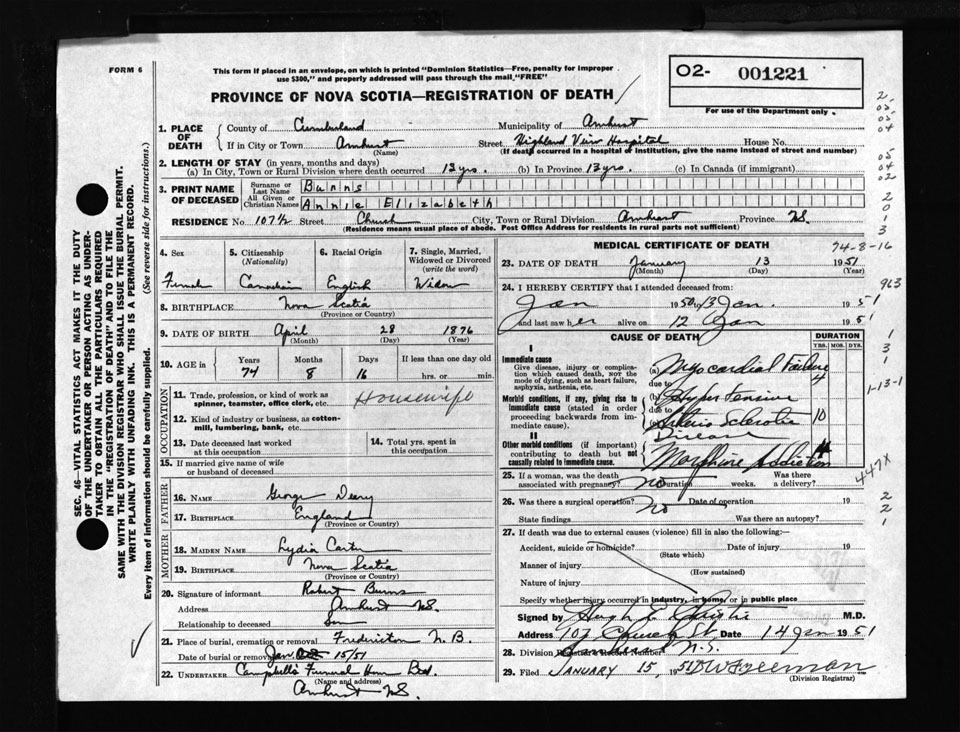 FORM 6
This form if placed in an envelope, on which is printed "Dominion Statistics—Free, penalty for improper
use $300," and properly addressed will pass through the mail "FREE"
O2- 001221
For use of the Department only
PROVINCE OF NOVA SCOTIA—REGISTRATION OF DEATH
1. PLACE OF DEATH { County of Cumberland Municipality of Amherst
If in City or Town Amherst (Name) Street Highland View Hospital House No.
(If death occurred in a hospital or institution, give the name instead of street and number)
2. LENGTH OF STAY (in years, months and days)
(a) In City, Town or Rural Division where death occurred 13 yrs. (b) In Province 13 yrs. (c) In Canada (if immigrant)
3. PRINT NAME OF DECEASED { Surname or Last Name Bunns
All Given or Christian Names Annie Elizabeth
RESIDENCE No. 107½ Street Church City, Town or Rural Division Amherst Province N.S.
(Residence means usual place of abode. Post Office Address for residents in rural parts not sufficient)
4. Sex Female
5. Citizenship (Nationality) Canadian
6. Racial Origin English
7. Single, Married, Widowed or Divorced (write the word) Widow
8. BIRTHPLACE Nova Scotia
(Province or Country)
9. DATE OF BIRTH April 28 1876
(Month) (Day) (Year)
10. AGE in { Years 74 Months 8 Days 16 If less than one day old hrs. or min.
OCCUPATION
11. Trade, profession, or kind of work as spinner, teamster, office clerk, etc. Housewife
12. Kind of industry or business, as cotton-mill, lumbering, bank, etc.
13. Date deceased last worked at this occupation
14. Total yrs. spent in this occupation
15. If married give name of wife or husband of deceased
FATHER
16. NAME George Deery
17. BIRTHPLACE England
(Province or Country)
MOTHER
18. MAIDEN NAME Lydia Carter
19. BIRTHPLACE Nova Scotia
(Province or Country)
20. Signature of informant Robert Burns
Address Amherst N.S.
Relationship to deceased Son
21. Place of burial, cremation or removal Fredericton N.B.
Date of burial or removal Jan 15/51
22. UNDERTAKER Campbell's Funeral Home
(Name and address)
Amherst N.S.
MEDICAL CERTIFICATE OF DEATH
74-8-16
23. DATE OF DEATH January 13 1951
(Month) (Day) (Year)
24. I HEREBY CERTIFY that I attended deceased from:
Jan 1950 to 13 Jan. 1951
and last saw her alive on 12 Jan 1951
963
CAUSE OF DEATH
DURATION
YRS. MOS. DYS.
I
Immediate cause
Give disease, injury or complication which caused death, NOT the mode of dying, such as heart failure, asphyxia, asthenia, etc.
(a) Myocardial Failure
due to 4
Morbid conditions, if any, giving rise to immediate cause (stated in order proceeding backwards from immediate cause).
(b) Hypertensive
due to
(c) Arterio Sclerotic 10
Disease
II
Other morbid conditions (if important) contributing to death but not causally related to immediate cause.
Morphine Addiction
1-13-1
447X
25. If a woman, was the death associated with pregnancy? No Duration weeks. Was there a delivery?
26. Was there a surgical operation? no Date of operation 19
State findings Was there an autopsy?
27. If death was due to external causes (violence) fill in also the following:—
Accident, suicide or homicide? Date of injury 19
(State which)
Manner of injury
(How sustained)
Nature of injury
Specify whether injury occurred in industry, in home, or in public place
Signed by Hugh E. Christie M.D.
Address 107 Church St. Date 14 Jan 1951
Amherst N.S.
28. Division Registrar's Record Number
29. Filed JANUARY 15, 1951 D W Freeman
(Division Registrar)
SEC. 46—VITAL STATISTICS ACT MAKES IT THE DUTY
OF THE UNDERTAKER OR PERSON ACTING AS UNDER-
TAKER TO OBTAIN ALL THE PARTICULARS REQUIRED
IN THE "REGISTRATION OF DEATH" AND TO FILE THE
SAME WITH THE DIVISION REGISTRAR WHO SHALL ISSUE THE BURIAL PERMIT.
WRITE PLAINLY WITH UNFADING INK. THIS IS A PERMANENT RECORD.
Every item of information should be carefully supplied. (See reverse side for instructions.)